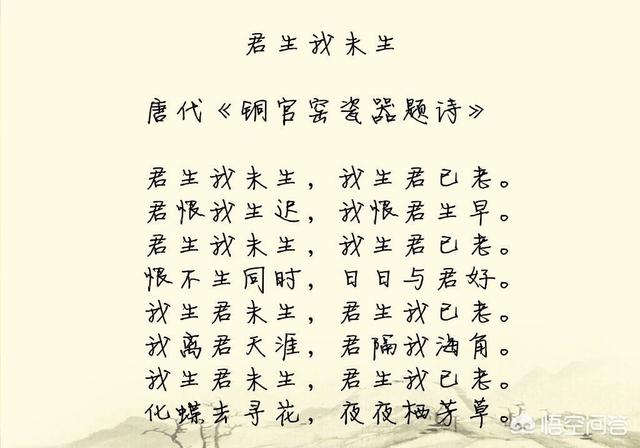 君生我未生
唐代《铜官窑瓷器题诗》
君生我未生，我生君已老。
君恨我生迟，我恨君生早。
君生我未生，我生君已老。
恨不生同时，日日与君好。
我生君未生，君生我已老。
我离君天涯，君隔我海角。
我生君未生，君生我已老。
化蝶去寻花，夜夜栖芳草。
悟空问答